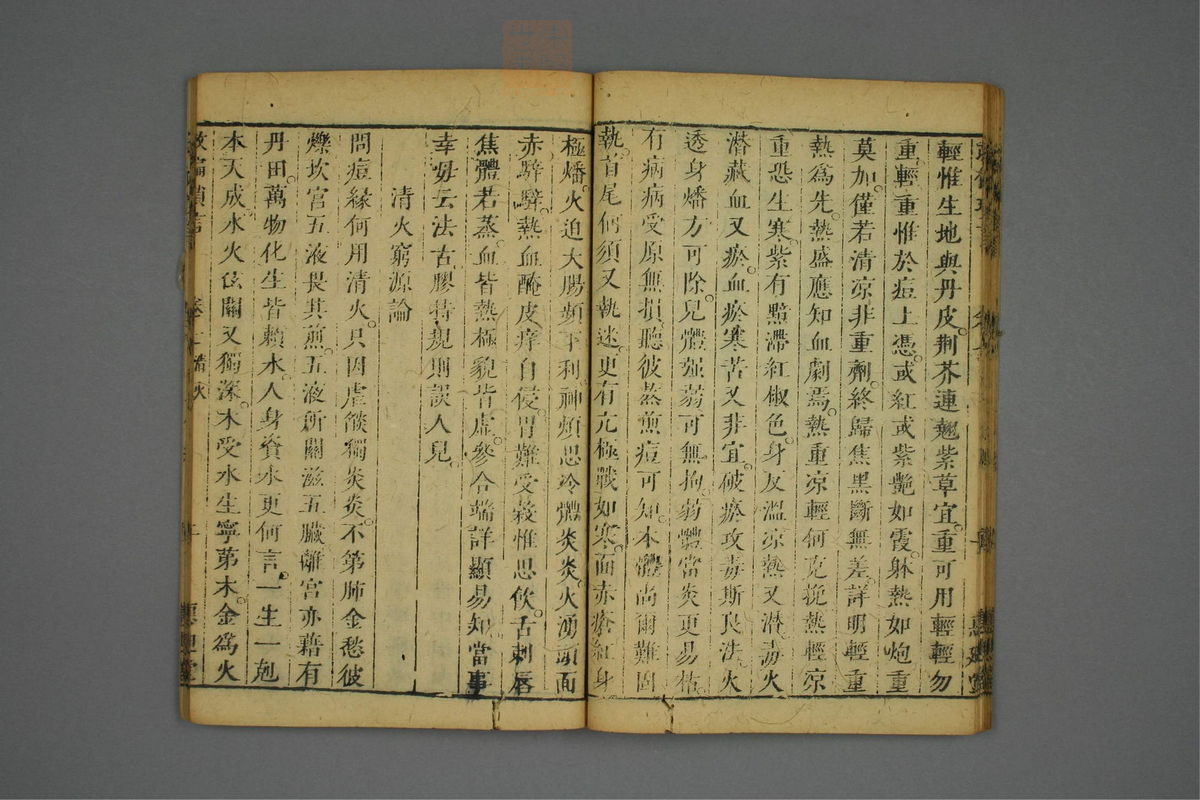 輕惟生地與丹皮荆芥連翹紫草宜重可用輕輕勿
重輕重惟於痘上憑或紅或紫艷如霞躰熱如炮重
莫加僅若清凉非重劑終歸焦黑斷無差詳明輕重
熱爲先熱盛應知血劇焉熱重凉輕何克挽熱輕凉
重恐生寒紫有點滯紅椒色身反溫凉熱又潜毒火
潜藏血又瘀血瘀寒苦又非宜破瘀攻毒斯良法火
透身燔方可除兒體强弱可無拘弱體當炎更易枯
有病病受原無損聽彼蒸煎痘可知本體尚爾難固
執首尾仍須又執迷更有亢極戰如寒面赤瘡紅身
極燔火迫大腸頻下利神煩思冷體炎炎火湧頭面
赤騂騂熱血醃皮痒自侵胃難受穀惟思飲舌刺唇
焦體若蒸血皆熱極貌皆虛參合端詳顯易知當事
幸毋云法古膠持規則誤人兒
清火窮源論
問痘緣何用清火只因虐燄獨炎炎不第肺金愁彼
爍坎宮五液畏其煎五液所關滋五臟離宮亦藉有
丹田萬物化生皆賴水人身資水更何言一生一尅
本天成水火玄關又獨深木受水生寧第木金爲火